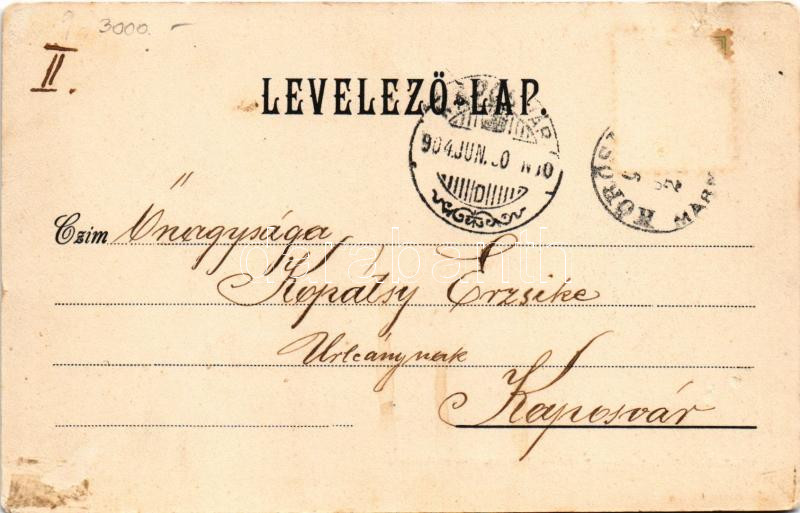 3000.-
II.
LEVELEZŐ LAP.
904 JUN. 30 N10
D
KŐRÖS
MÁRM
Czim Őnagysága
Kopátsy Erzsike
Urleánynak
Kaposvár
darabanth